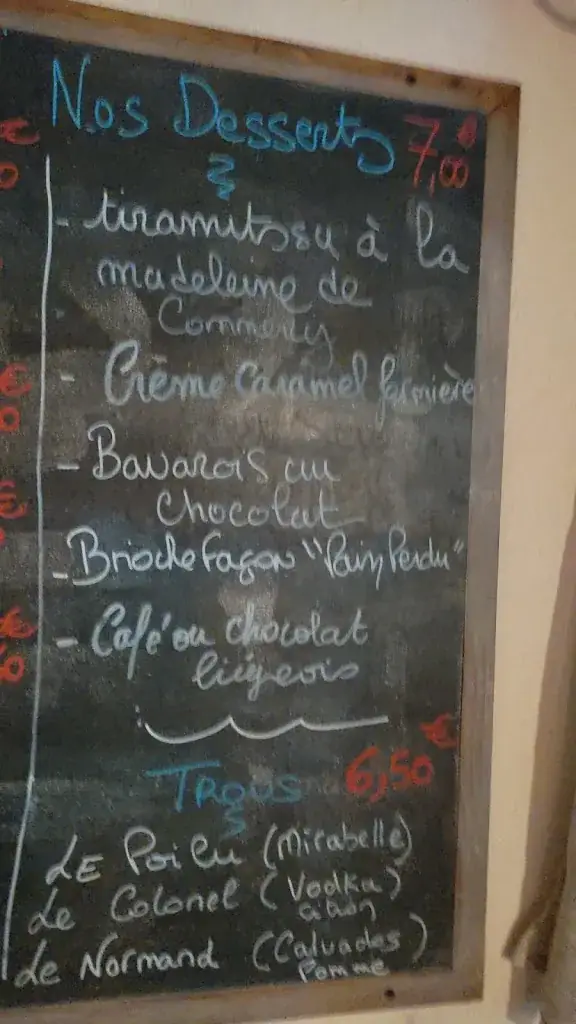 Nos Desserts 7,00 €
- tiramitssu à la
madeleine de
Commercy
- Crème Caramel fermière
- Bavarois au
chocolat
- Brioche façon "Pain Perdu"
- Café ou chocolat
liégeois
TROUS 6,50 €
LE Poilu (Mirabelle)
Le Colonel (Vodka)
citron
Le Normand (Calvados)
Pomme